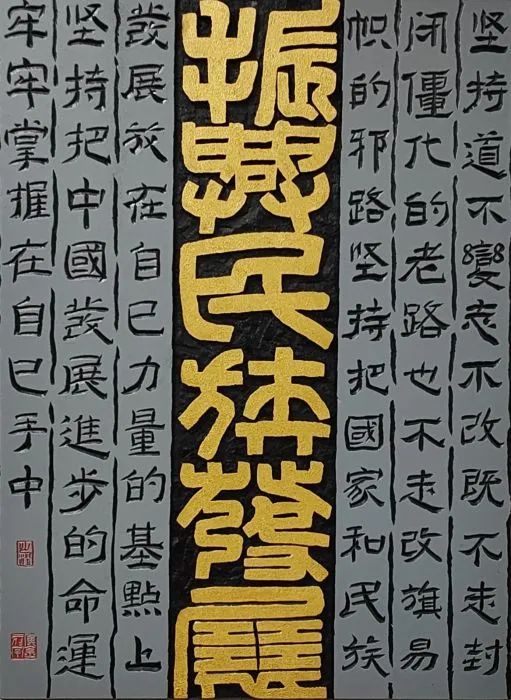 坚持道不變志不改既不走封
闭僵化的老路也不走改旗易
帜的邪路坚持把國家和民族
振興民族發展
發展放在自己力量的基點上
坚持把中國發展進步的命運
牢牢掌握在自己手中